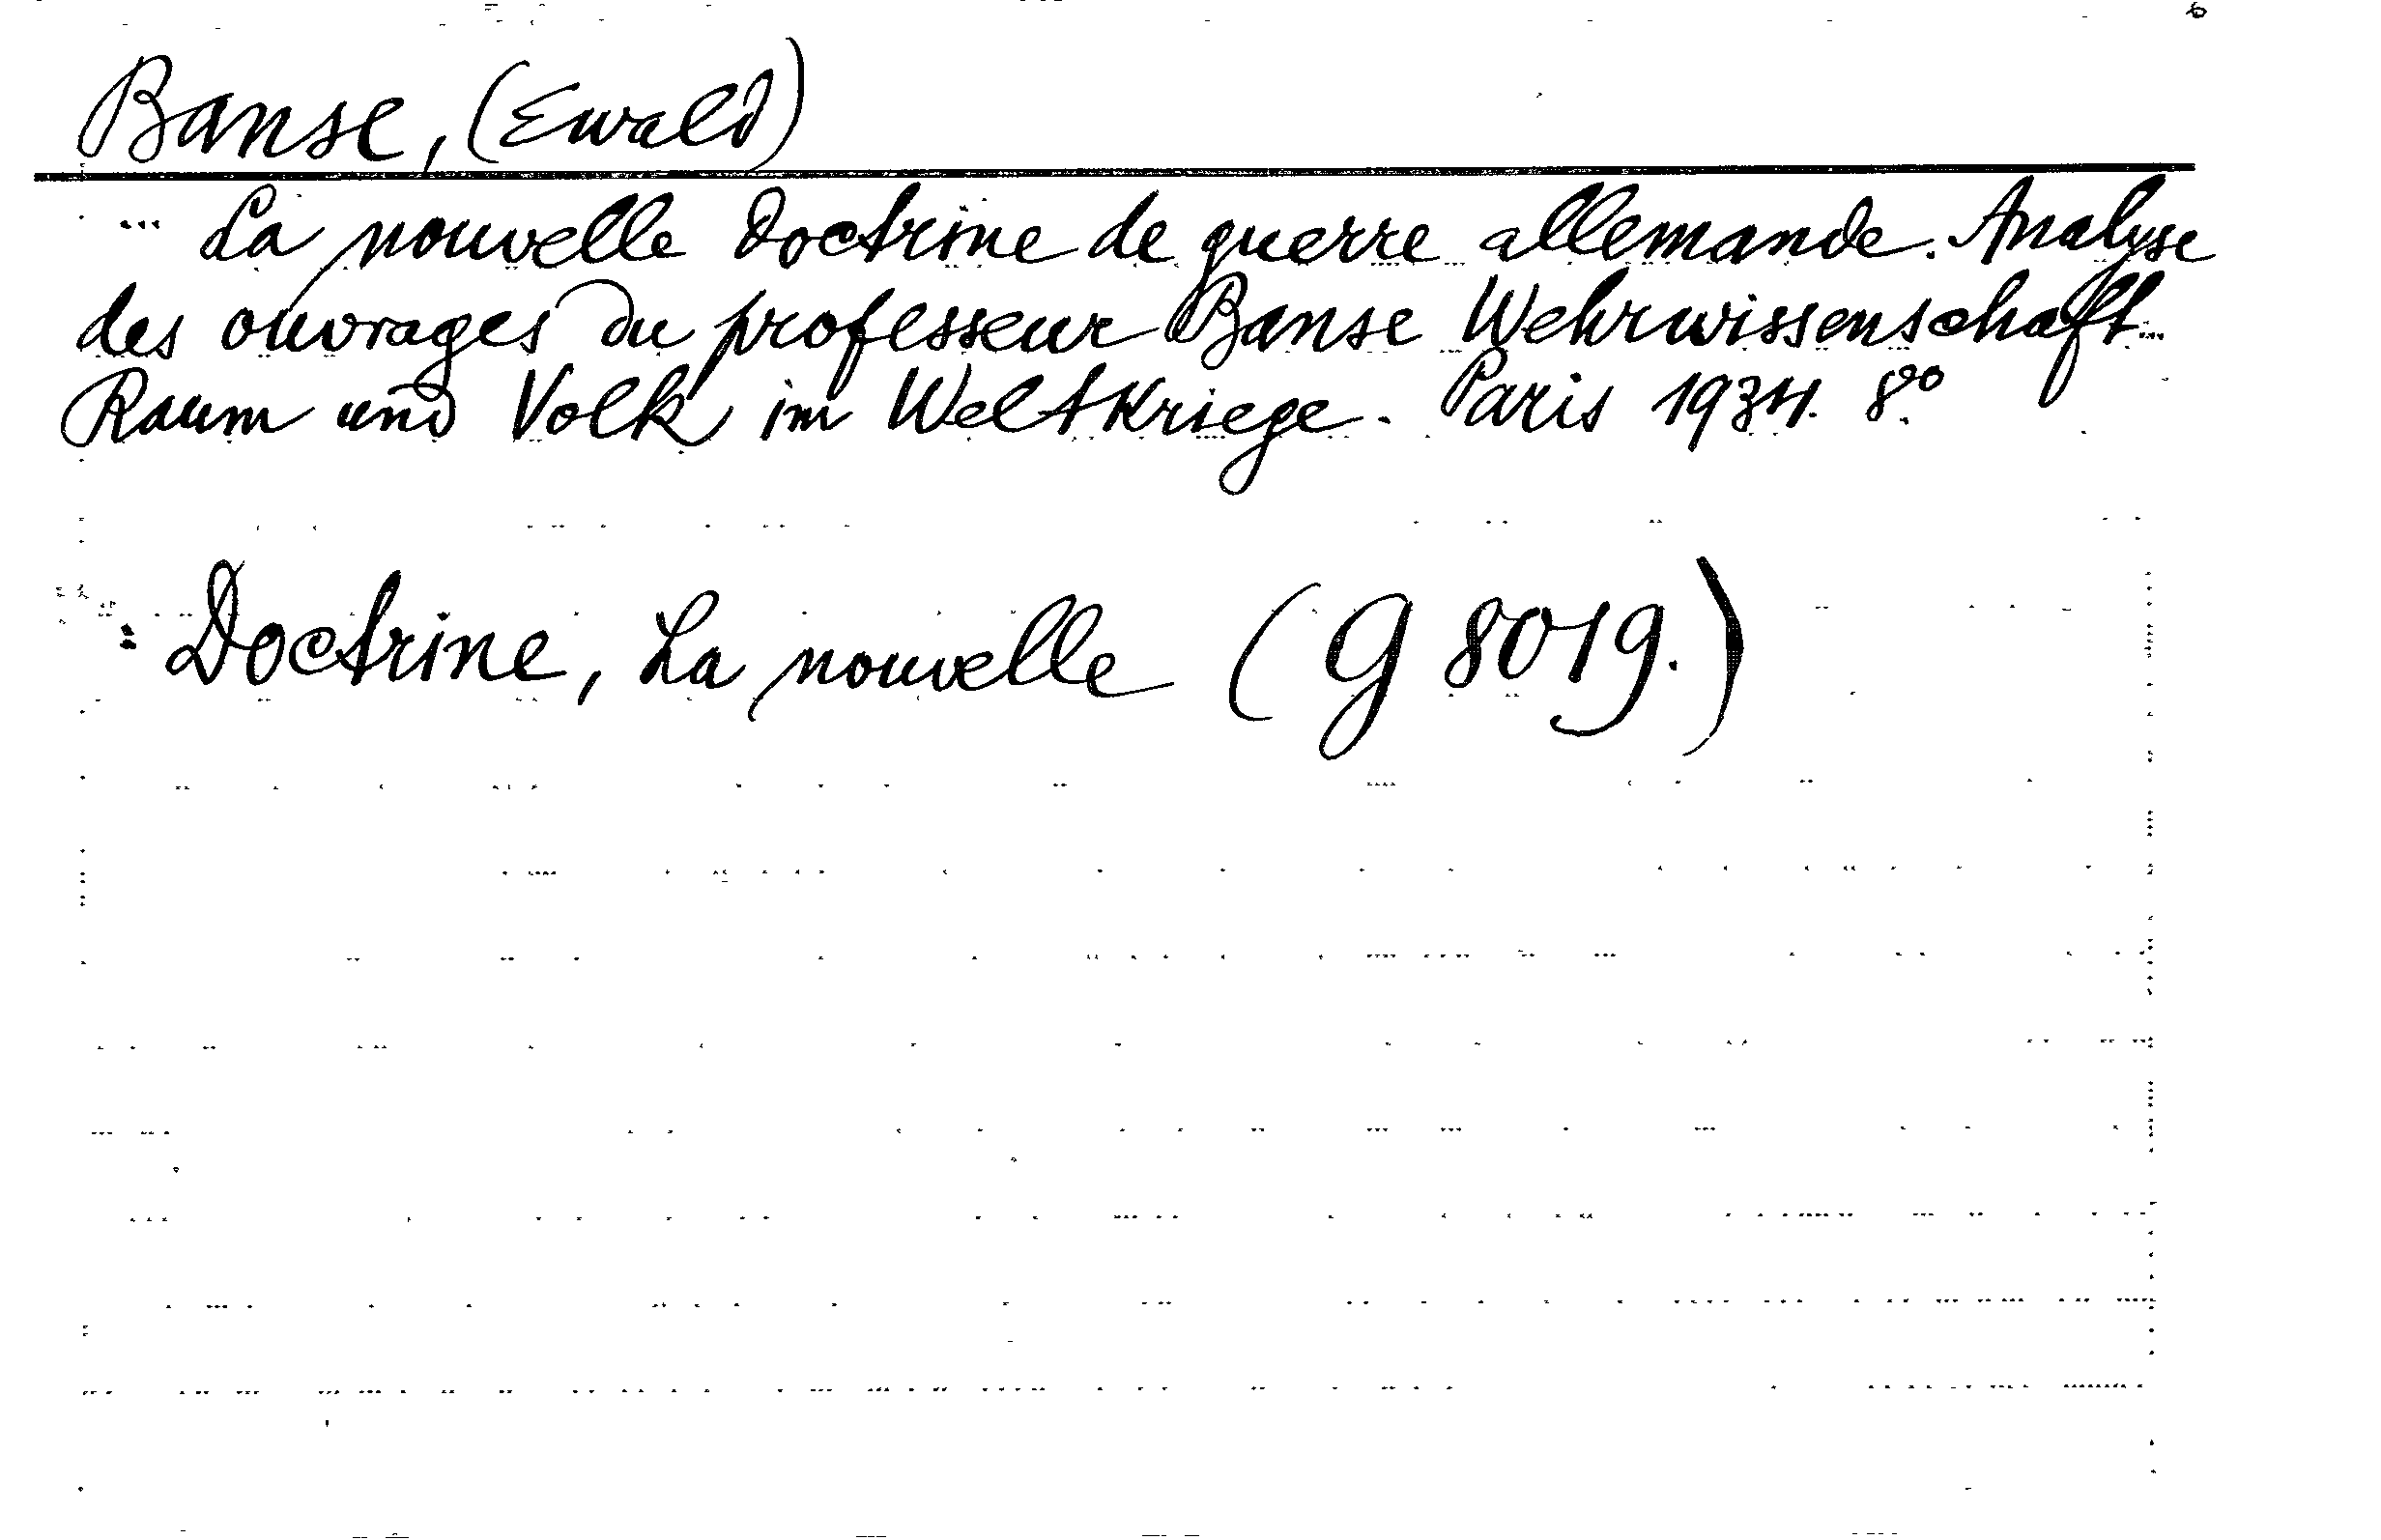 Banse, (Ewald)
... La nouvelle doctrine de guerre allemande. Analyse
des ouvrages du professeur Banse Wehrwissenschaft...
Raum und Volk im Weltkriege. Paris 1934. 8°.
: Doctrine, La nouvelle (G 8019.)